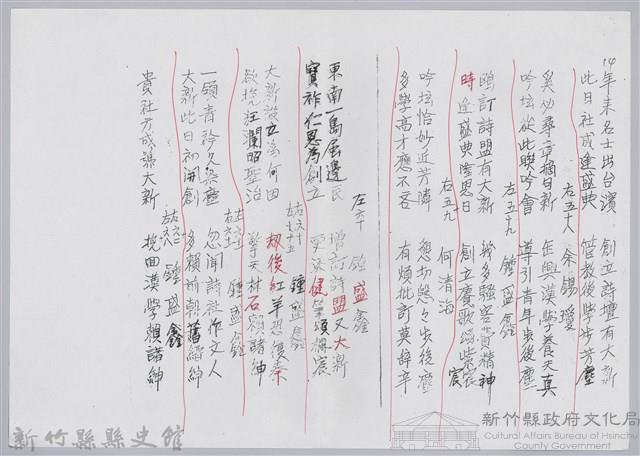 年來名士出台濱 創立詩壇有大新
此日社成逢盛典 管教後學步芳塵
左五十八 余錫瓊
吳幼尋章摘句新 年與漢學養天真
吟坛從此與吟會 導引青年步後塵
左五十九 鍾盛鑫
鷗訂詩盟有大新 紛多騷客苦精神
時逢盛典隆恩日 創立賡歌頌紫宸
右五九 何清海
吟坛恰妙近芳隣 愁初態々步後塵
多學高才應不吝 有煩批訂莫辞辛
左六十 鍾盛鑫
東南一島屆邊民 增訂詩盟又大新
寶祚仁恩為創立 健筆頌楓宸
右六十 左七十五 鍾盛鑫
大新設立為何因 劫後紅羊恐復秦
欲挽狂瀾昭聖治 擎天林石賴諸紳
右六一 鍾盛鑫
一領青衿久染塵 忽聞詩社作文人
大新此日初開創 多賴崩朝舊縉紳
右六二 左六八 鍾盛鑫
貴社芳成滿大新 挽回漢學賴諸紳
新竹縣縣史館
新竹縣政府文化局
Cultural Affairs Bureau of Hsinchu
County Government